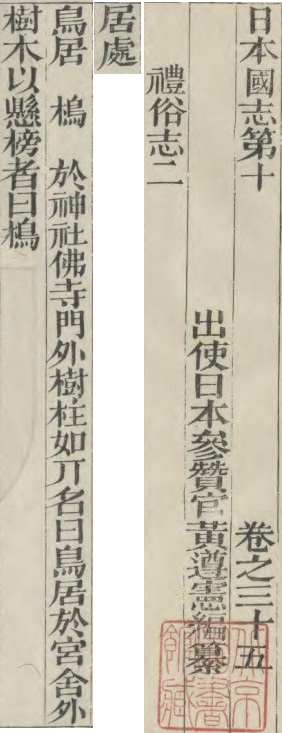 日本國志第十　卷之三十五
出使日本參贊官黃遵憲編纂
禮俗志二
居處
鳥居　槝　於神社佛寺門外樹柱如丌名曰鳥居於宮舍外
樹木以懸榜者曰槝